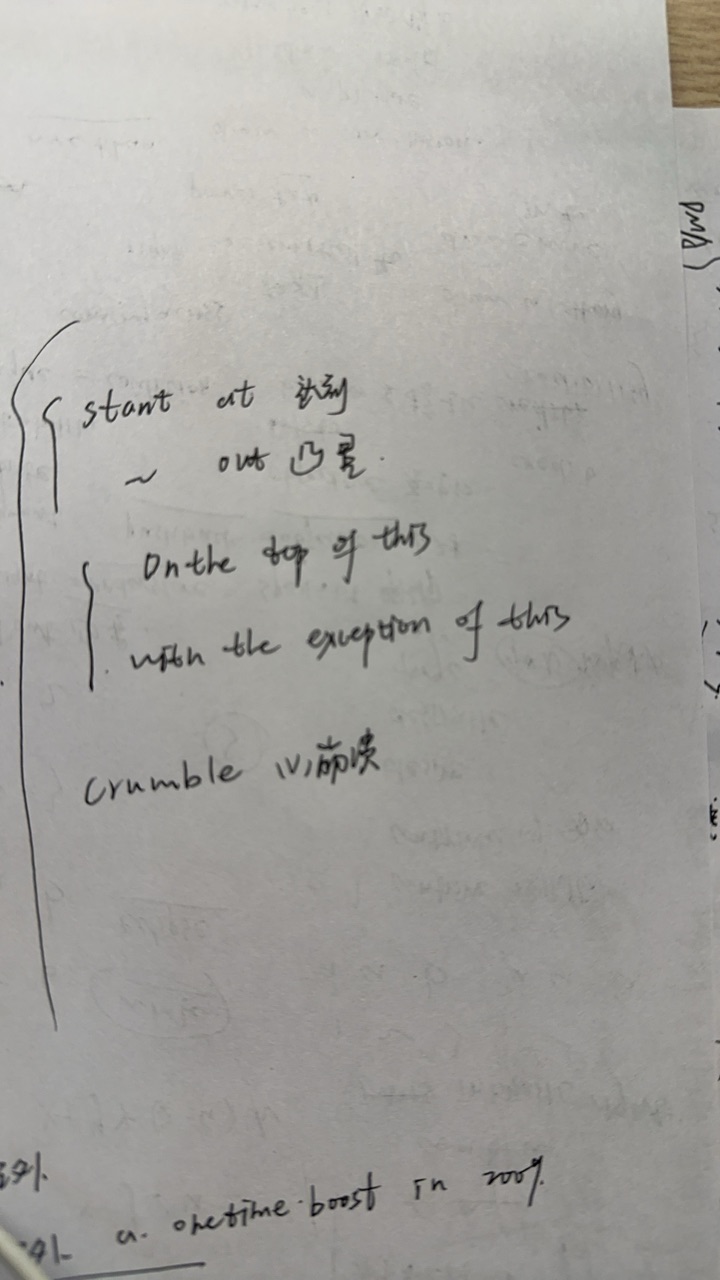 start at 达到
~ out 凸显.
On the top of this
with the exception of this
crumble (V) 崩溃
a. onetime boost in 2009.